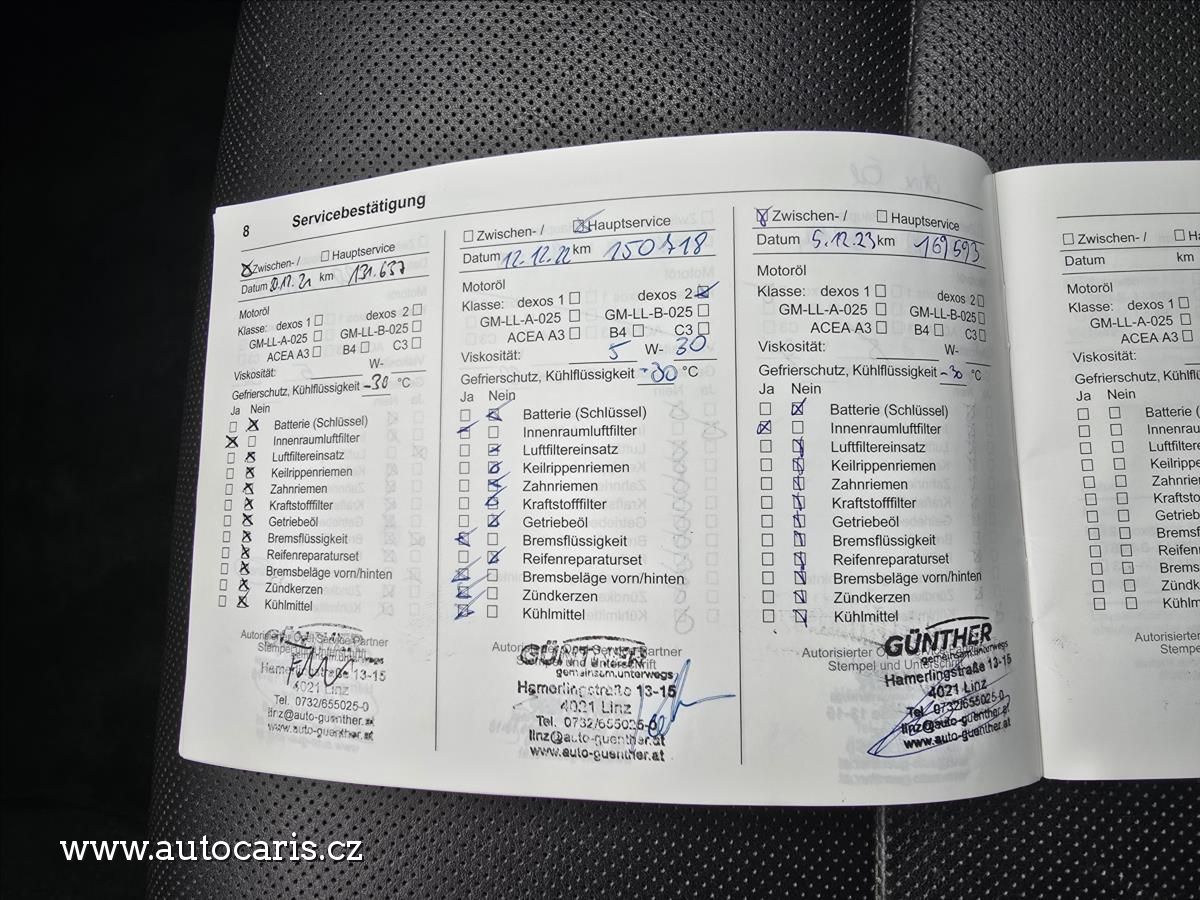 8 Servicebestätigung
Zwischen- / Hauptservice
Datum km 131.637
Motoröl
Klasse: dexos 1 dexos 2
GM-LL-A-025 GM-LL-B-025
ACEA A3 B4 C3
Viskosität: W-
Gefrierschutz, Kühlflüssigkeit -30 °C
Ja Nein
Batterie (Schlüssel)
Innenraumluftfilter
Luftfiltereinsatz
Keilrippenriemen
Zahnriemen
Kraftstofffilter
Getriebeöl
Bremsflüssigkeit
Reifenreparaturset
Bremsbeläge vorn/hinten
Zündkerzen
Kühlmittel
Autorisierter Opel Service Partner
Stempel und Unterschrift
GÜNTHER
Hamerlingstraße 13-15
4021 Linz
Tel. 0732/655025-0
linz@auto-guenther.at
www.auto-guenther.at
Zwischen- / Hauptservice
Datum 12.12.22 km 150718
Motoröl
Klasse: dexos 1 dexos 2
GM-LL-A-025 GM-LL-B-025
ACEA A3 B4 C3
Viskosität: 5 W- 30
Gefrierschutz, Kühlflüssigkeit -30 °C
Ja Nein
Batterie (Schlüssel)
Innenraumluftfilter
Luftfiltereinsatz
Keilrippenriemen
Zahnriemen
Kraftstofffilter
Getriebeöl
Bremsflüssigkeit
Reifenreparaturset
Bremsbeläge vorn/hinten
Zündkerzen
Kühlmittel
Autorisierter Opel Service Partner
Stempel und Unterschrift
GÜNTHER
gemeinsam.unterwegs
Hamerlingstraße 13-15
4021 Linz
Tel. 0732/655025-0
linz@auto-guenther.at
www.auto-guenther.at
Zwischen- / Hauptservice
Datum 5.12.23 km 169593
Motoröl
Klasse: dexos 1 dexos 2
GM-LL-A-025 GM-LL-B-025
ACEA A3 B4 C3
Viskosität: W-
Gefrierschutz, Kühlflüssigkeit -30 °C
Ja Nein
Batterie (Schlüssel)
Innenraumluftfilter
Luftfiltereinsatz
Keilrippenriemen
Zahnriemen
Kraftstofffilter
Getriebeöl
Bremsflüssigkeit
Reifenreparaturset
Bremsbeläge vorn/hinten
Zündkerzen
Kühlmittel
Autorisierter Opel Service Partner
Stempel und Unterschrift
GÜNTHER
gemeinsam.unterwegs
Hamerlingstraße 13-15
4021 Linz
Tel. 0732/655025-0
linz@auto-guenther.at
www.auto-guenther.at
Zwischen- / Ha
Datum km
Motoröl
Klasse: dexos 1
GM-LL-A-025
ACEA A3
Viskosität:
Gefrierschutz, Kühlflüssig
Ja Nein
Batterie (
Innenraum
Luftfiltere
Keilrippe
Zahnriem
Kraftstoff
Getriebeö
Bremsflü
Reifenre
Bremsbe
Zündker
Kühlm
Autorisierter
Stempel
www.autocaris.cz